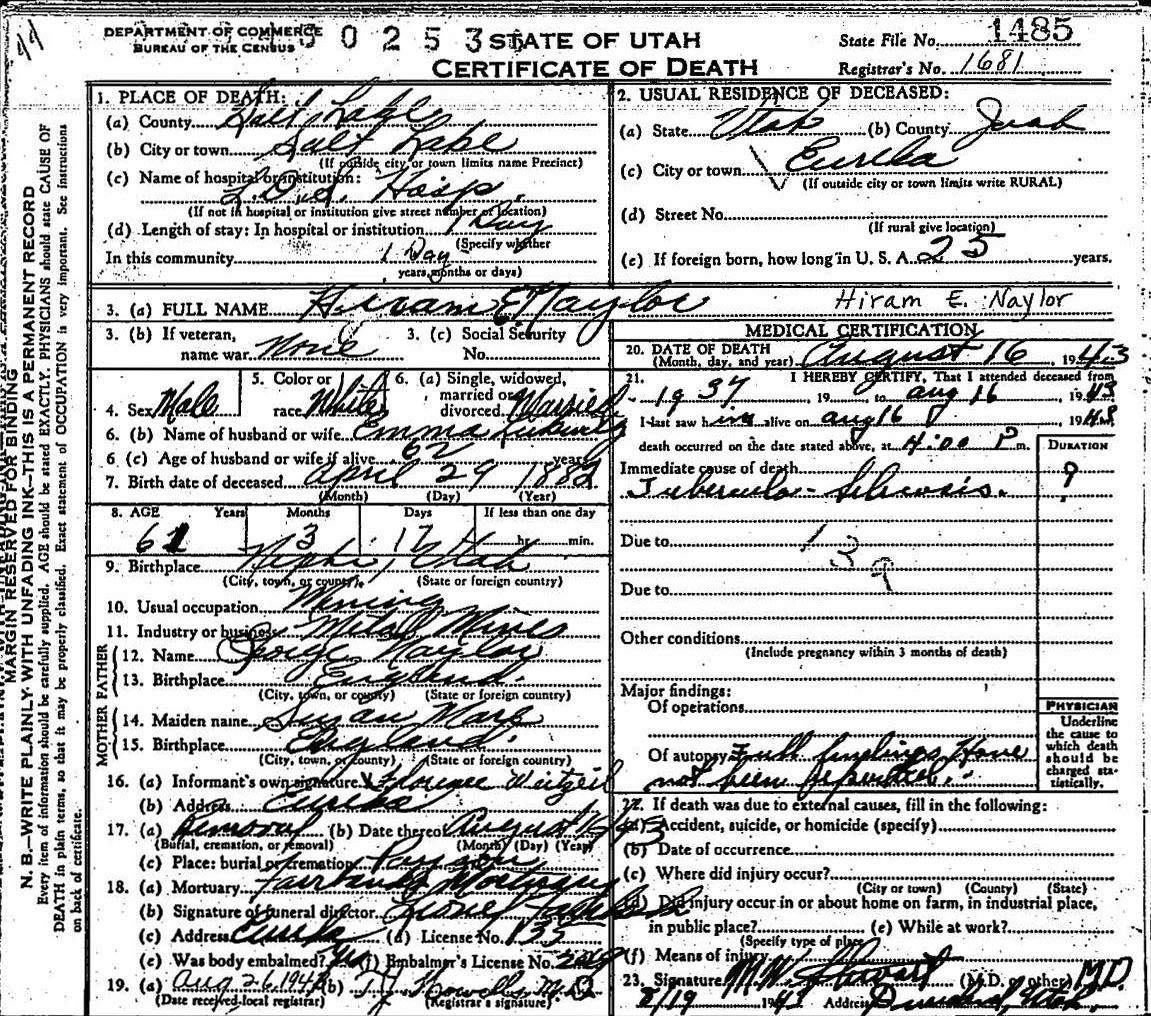 44
DEPARTMENT OF COMMERCE
BUREAU OF THE CENSUS
5 0 2 5 3
STATE OF UTAH
CERTIFICATE OF DEATH
State File No. 1485
Registrar's No. 1681
MARGIN RESERVED FOR BINDING
N. B.—WRITE PLAINLY WITH UNFADING INK—THIS IS A PERMANENT RECORD
Every item of information should be carefully supplied. AGE should be stated EXACTLY. PHYSICIANS should state CAUSE OF
DEATH in plain terms, so that it may be properly classified. Exact statement of OCCUPATION is very important. See instructions
on back of certificate.
1. PLACE OF DEATH:
(a) County Salt Lake
(b) City or town Salt Lake
(If outside city or town limits name Precinct)
(c) Name of hospital or institution:
L.D.S. Hosp.
(If not in hospital or institution give street number or location)
(d) Length of stay: In hospital or institution 1 Day
(Specify whether
In this community 1 Day
years, months or days)
2. USUAL RESIDENCE OF DECEASED:
(a) State Utah (b) County Juab
(c) City or town Eureka
(If outside city or town limits write RURAL)
(d) Street No.
(If rural give location)
(e) If foreign born, how long in U. S. A. 25 years.
3. (a) FULL NAME Hiram E. Naylor Hiram E. Naylor
3. (b) If veteran, name war None 3. (c) Social Security No.
4. Sex Male 5. Color or race White 6. (a) Single, widowed, married or divorced Married
6. (b) Name of husband or wife Emma
6 (c) Age of husband or wife if alive 62 years
7. Birth date of deceased April 29 1882
(Month) (Day) (Year)
8. AGE Years Months Days If less than one day
61 3 17 hr. min.
9. Birthplace Nephi, Utah
(City, town, or county) (State or foreign country)
10. Usual occupation Mining
11. Industry or business Metal Mines
FATHER
12. Name George Naylor
13. Birthplace England.
(City, town, or county) (State or foreign country)
MOTHER
14. Maiden name Susan
15. Birthplace England.
(City, town, or county) (State or foreign country)
16. (a) Informant's own signature Florence
(b) Address Eureka
17. (a) Removal (b) Date thereof August
(Burial, cremation, or removal) (Month) (Day) (Year)
(c) Place: burial or cremation Payson
18. (a) Mortuary Mortuary
(b) Signature of funeral director
(c) Address Eureka (d) License No. 135
(e) Was body embalmed? Yes (f) Embalmer's License No.
19. (a) Aug 26, 1943 (b) T.J. Howells M.D.
(Date received local registrar) (Registrar's signature)
MEDICAL CERTIFICATION
20. DATE OF DEATH
(Month, day, and year) August 16, 1943
21. I HEREBY CERTIFY, That I attended deceased from
1937, 19 to Aug 16, 1943
I last saw him alive on Aug 16, 1943
death occurred on the date stated above, at 4:00 P. m.
DURATION
Immediate cause of death ?
Tuberculo-Silicosis.
Due to
139
Due to
Other conditions
(Include pregnancy within 3 months of death)
Major findings:
Of operations
Of autopsy Full findings Have
not been reported.
PHYSICIAN
Underline
the cause to
which death
should be
charged sta-
tistically.
22. If death was due to external causes, fill in the following:
(a) Accident, suicide, or homicide (specify)
(b) Date of occurrence
(c) Where did injury occur?
(City or town) (County) (State)
(d) Did injury occur in or about home on farm, in industrial place,
in public place? (e) While at work?
(Specify type of place)
(f) Means of injury
23. Signature M.W. Stewart (M.D. or other) M.D.
8/19 1943 Address Utah.